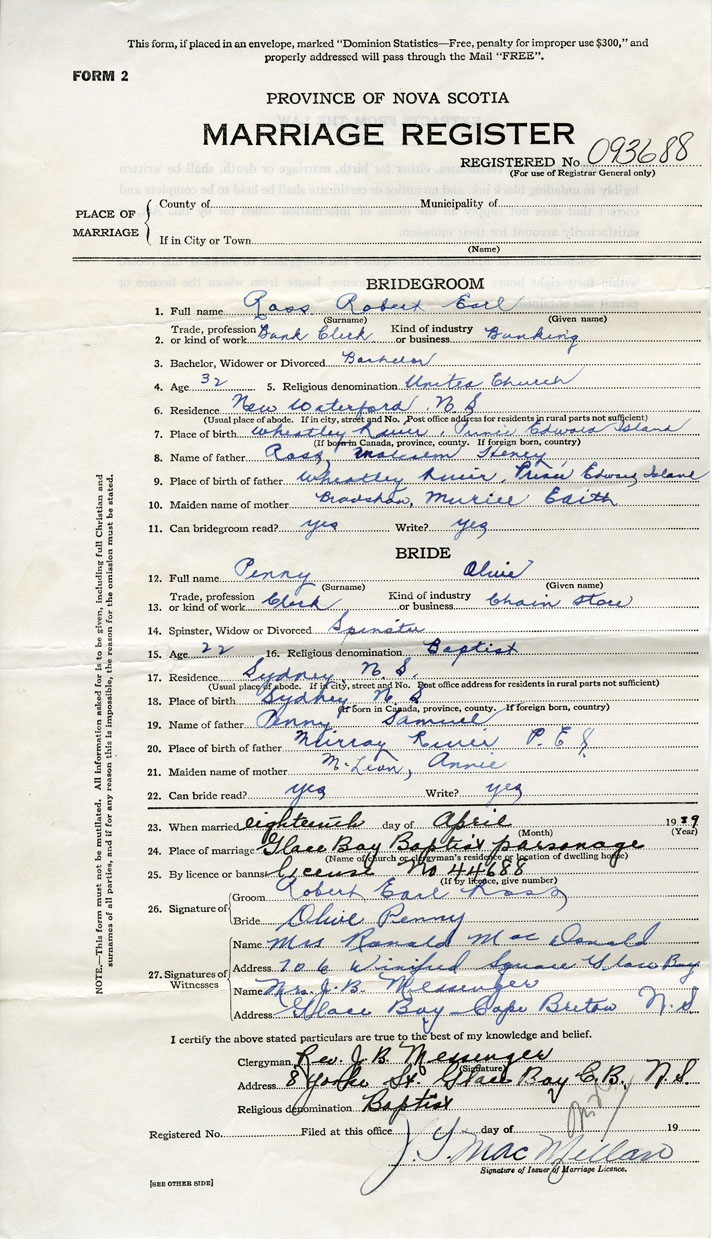 This form, if placed in an envelope, marked "Dominion Statistics—Free, penalty for improper use $300," and
properly addressed will pass through the Mail "FREE".
FORM 2
PROVINCE OF NOVA SCOTIA
MARRIAGE REGISTER
REGISTERED No. 093688
(For use of Registrar General only)
PLACE OF MARRIAGE
County of Municipality of
If in City or Town
(Name)
BRIDEGROOM
1. Full name Ross Robert Earl
(Surname) (Given name)
Trade, profession Kind of industry
2. or kind of work Bank Clerk or business Banking
3. Bachelor, Widower or Divorced Bachelor
4. Age 32 5. Religious denomination United Church
6. Residence New Waterford, N.S
(Usual place of abode. If in city, street and No. Post office address for residents in rural parts not sufficient)
7. Place of birth Wheatley River, Prince Edward Island
(If born in Canada, province, county. If foreign born, country)
8. Name of father Ross, Malcolm Henry
9. Place of birth of father Wheatley River, Prince Edward Island
10. Maiden name of mother Bradshaw, Muriel Edith
11. Can bridegroom read? yes Write? yes
BRIDE
12. Full name Penny Olive
(Surname) (Given name)
Trade, profession Kind of industry
13. or kind of work Clerk or business Chain Store
14. Spinster, Widow or Divorced Spinster
15. Age 22 16. Religious denomination Baptist
17. Residence Sydney, N.S.
(Usual place of abode. If in city, street and No. Post office address for residents in rural parts not sufficient)
18. Place of birth Sydney N.S
(If born in Canada, province, county. If foreign born, country)
19. Name of father Penny Samuel
20. Place of birth of father Murray River P.E I.
21. Maiden name of mother McLean, Annie
22. Can bride read? yes Write? yes
23. When married eighteenth day of April 1939
(Month) (Year)
24. Place of marriage Glace Bay Baptist parsonage
(Name of church or clergyman's residence or location of dwelling house)
25. By licence or banns License No 44688
(If by licence, give number)
26. Signature of
Groom Robert Earl Ross
Bride Olive Penny
27. Signatures of Witnesses
Name Mrs Ronald MacDonald
Address 70 6 Winifred Square Glace Bay
Name Mrs. J.B. Messenger
Address Glace Bay Cape Breton N.S
I certify the above stated particulars are true to the best of my knowledge and belief.
Clergyman Rev. J B Messenger
(Signature)
Address 8 Yorke St. Glace Bay C.B. N.S.
Religious denomination Baptist
Registered No. Filed at this office day of 19
Signature of Issuer of Marriage Licence.
[SEE OTHER SIDE]
NOTE.—This form must not be mutilated. All information asked for is to be given, including full Christian and
surnames of all parties, and if for any reason this is impossible, the reason for the omission must be stated.